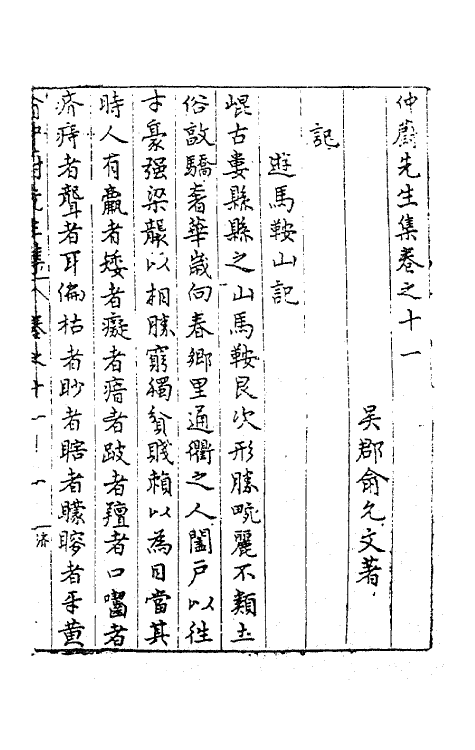 仲蔚先生集卷之十一
吳郡俞允文著
記
遊馬鞍山記
崐古婁縣縣之山馬鞍艮次形勝畹麗不類土
俗敦驕奢華歲向春鄉里通衢之人闔戶以往
才豪强梁龍以相勝窮獨貧賤賴以為目當其
時人有羸者矮者癡者瘖者跛者羶者口喎者
濟痔者聾者耳偏枯者眇者瞎者矇䀮者手黃
俞仲蔚先生集 卷之十一 一 濟